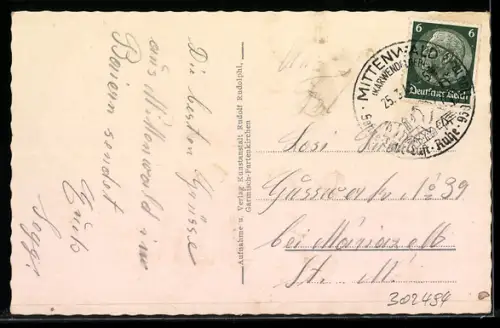 Die besten Grüsse
aus Mittenwald im
Baiern sendet
Aufnahme u. Verlag Kunstanstalt Rudolf Rudolphi,
Garmisch-Partenkirchen
6 6
Deutsches Reich
MITTENWALD
(KARWENDEL
Luft · Ruhe ·
Gusswerk No 39
bei Mariazell
St. M.
302484